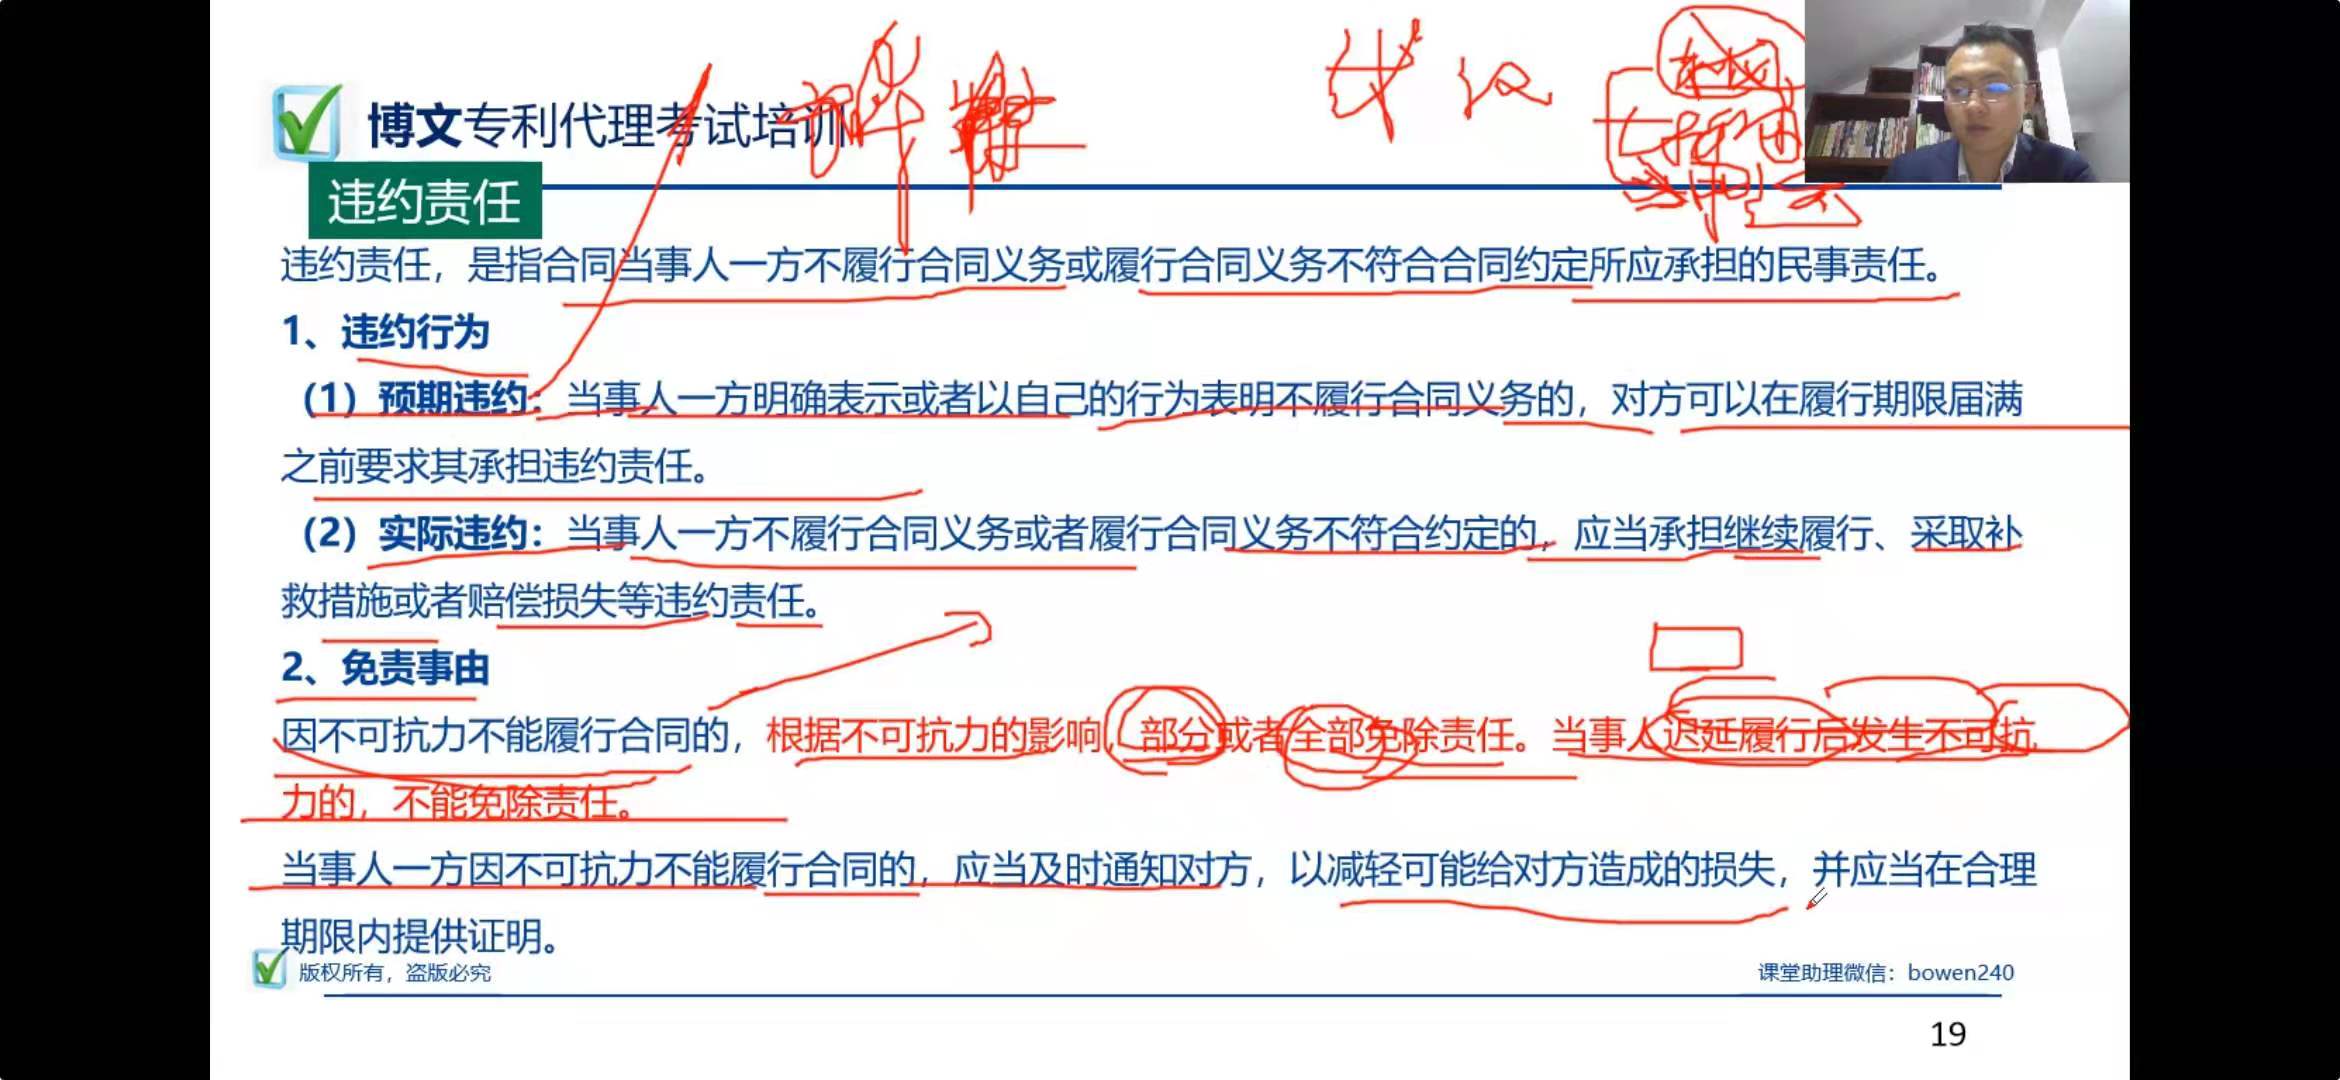 博文专利代理考试培训
违约责任
违约责任，是指合同当事人一方不履行合同义务或履行合同义务不符合合同约定所应承担的民事责任。
1、违约行为
（1）预期违约：当事人一方明确表示或者以自己的行为表明不履行合同义务的，对方可以在履行期限届满
之前要求其承担违约责任。
（2）实际违约：当事人一方不履行合同义务或者履行合同义务不符合约定的，应当承担继续履行、采取补
救措施或者赔偿损失等违约责任。
2、免责事由
因不可抗力不能履行合同的，根据不可抗力的影响，部分或者全部免除责任。当事人迟延履行后发生不可抗
力的，不能免除责任。
当事人一方因不可抗力不能履行合同的，应当及时通知对方，以减轻可能给对方造成的损失，并应当在合理
期限内提供证明。
版权所有，盗版必究
课堂助理微信：bowen240
19